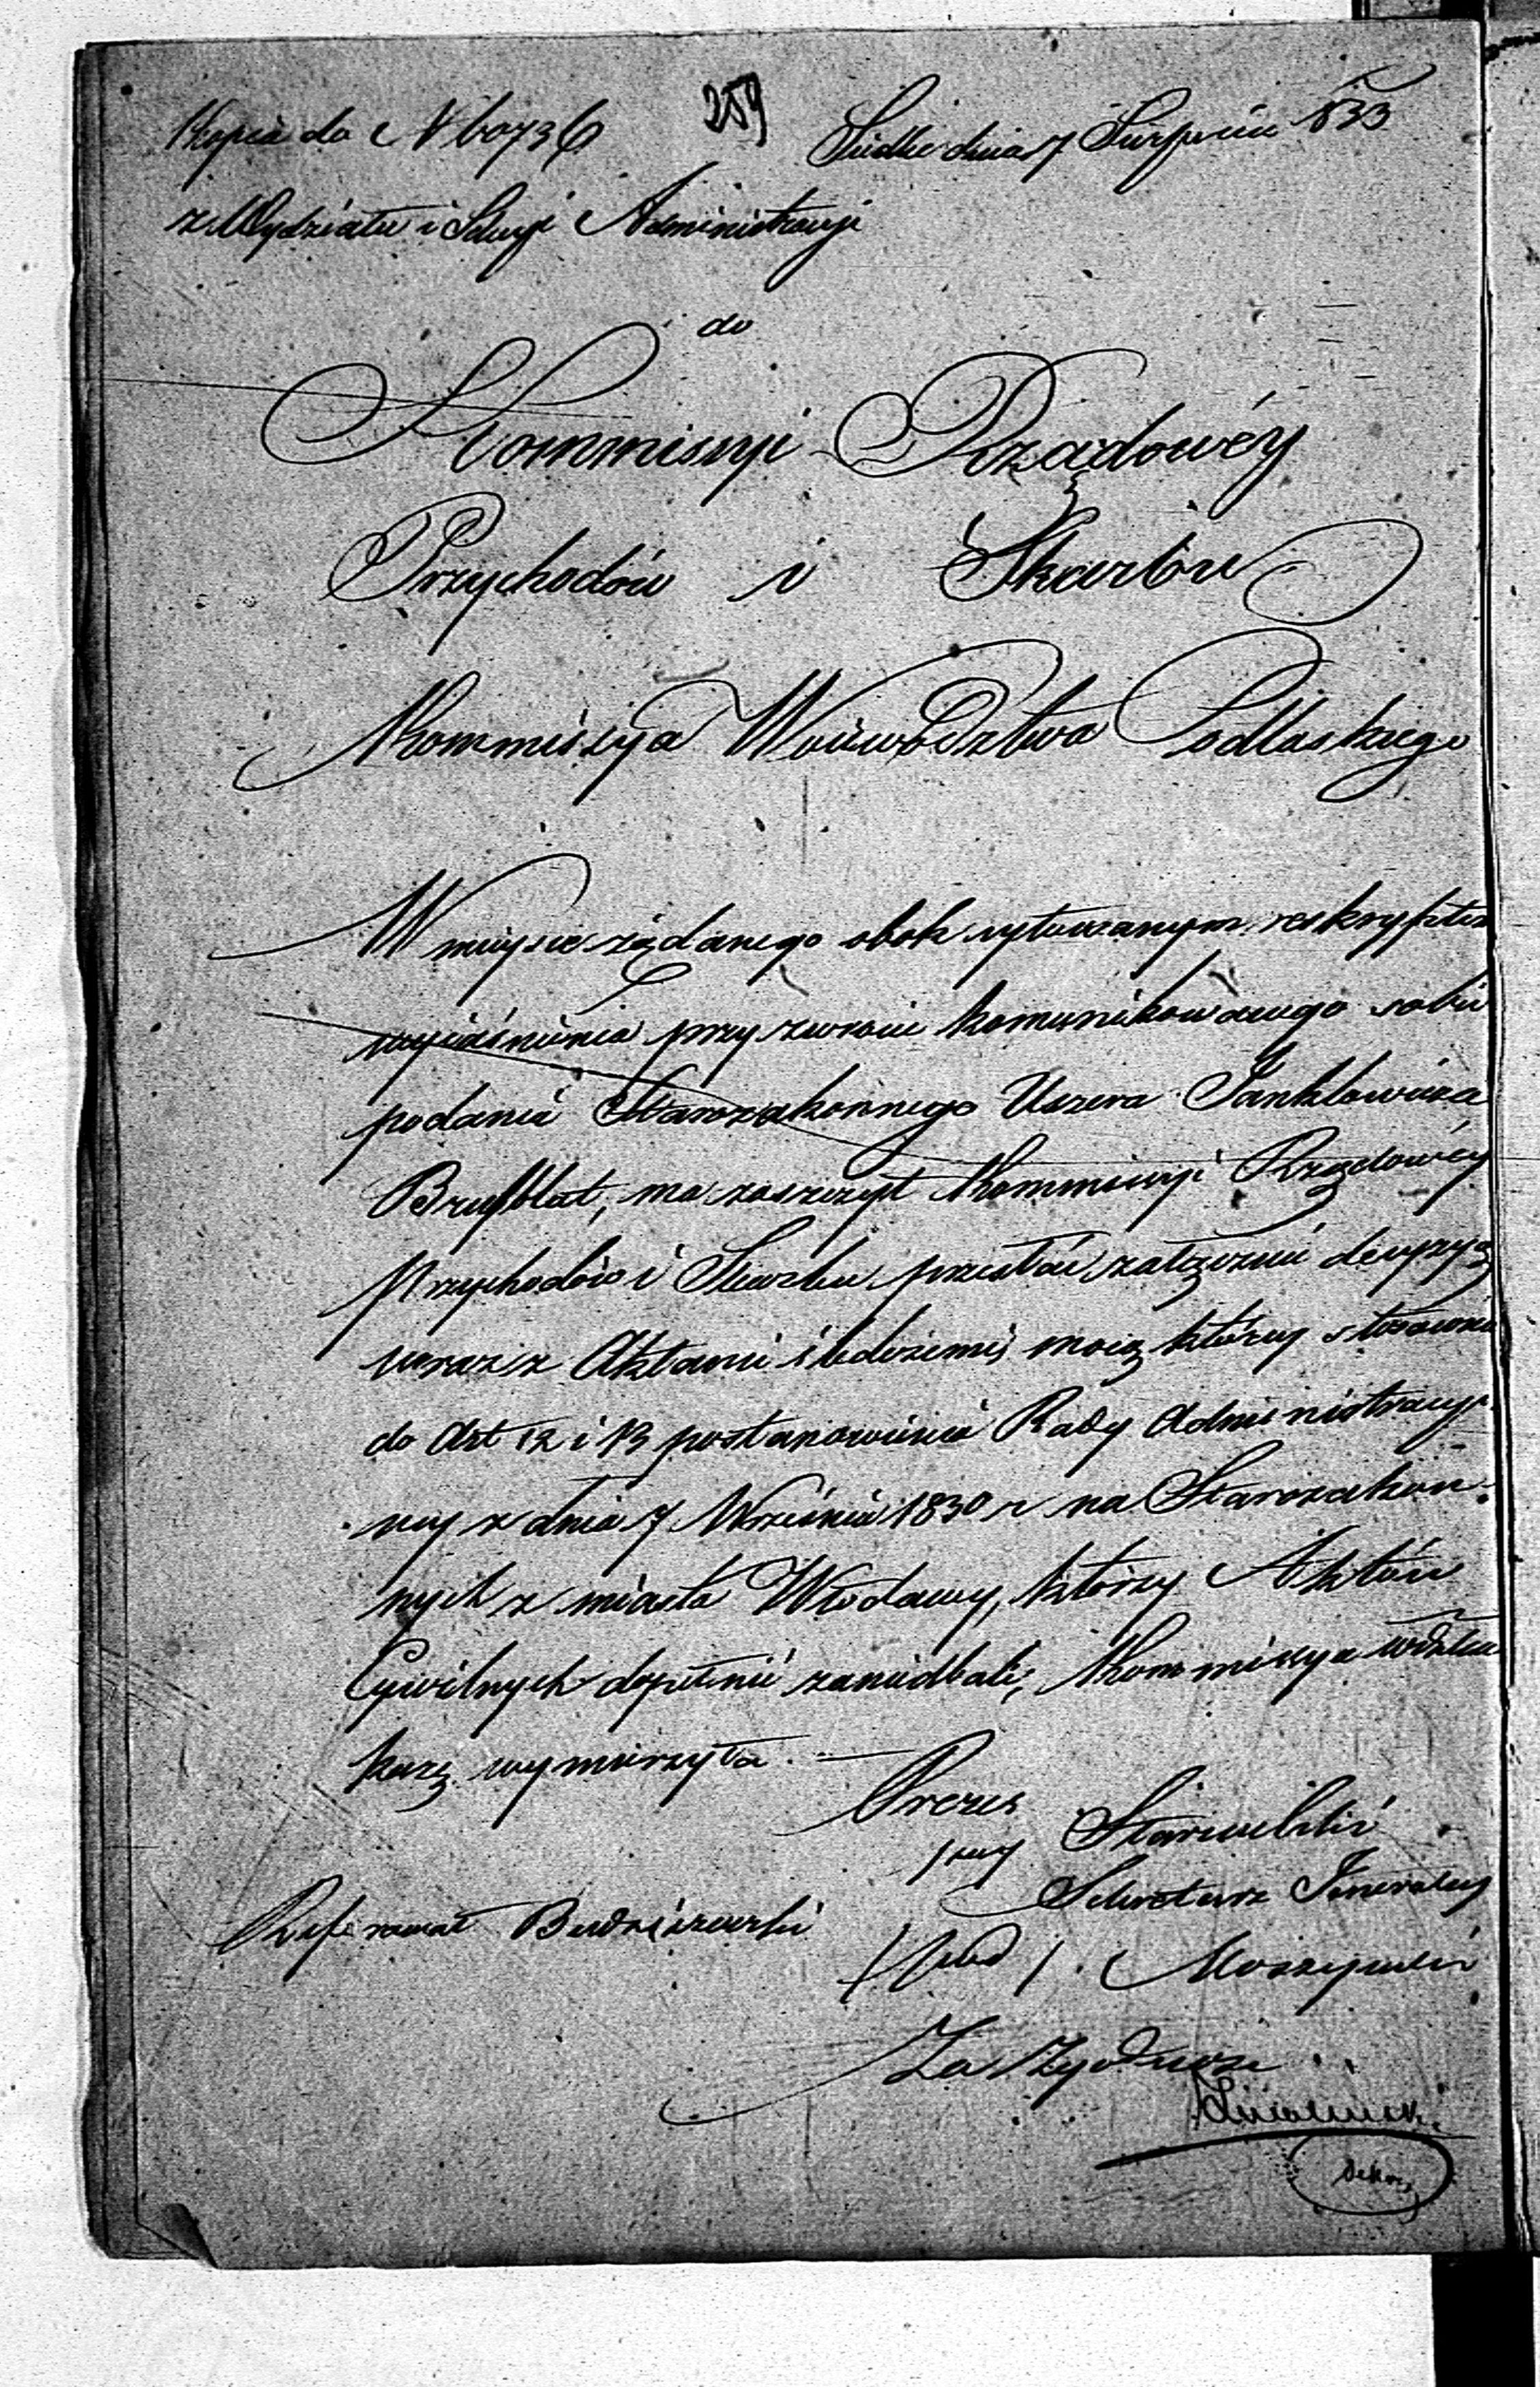 259
Kopia do N 60736 Siedlce dnia 7 Sierpnia 1833
z Wydziału i Sekcyi Administracyi
do
Kommissyi Rządowéy
Przychodów i Skarbu
Kommissya Woiewództwa Podlaskiego
W mieysce żądanego obok cytowanym reskryptem
wyiaśnienia przy zwrocie komunikowanego sobie
podania Starozakonnego Uszera Jankłowicza
Brustblat, ma zaszczyt Kommissyi Rządowéy
Przychodów i Skarbu przesłać załączenie decyzyą
wraz z Aktami śledczemi, mocą któréy stosownie
do Art 12 i 13 postanowienia Rady Administracyi-
ney z dnia 7 Września 1830 r na Starozakon-
nych z miasta Włodawy, którzy Aktów
Cywilnych dopełnić zaniedbali, Kommissya Wdztwa
karę wymierzyła.
Prezes
Sekretarz Jeneralny
Referował
/podp/. Moszyński
Za Zgodność